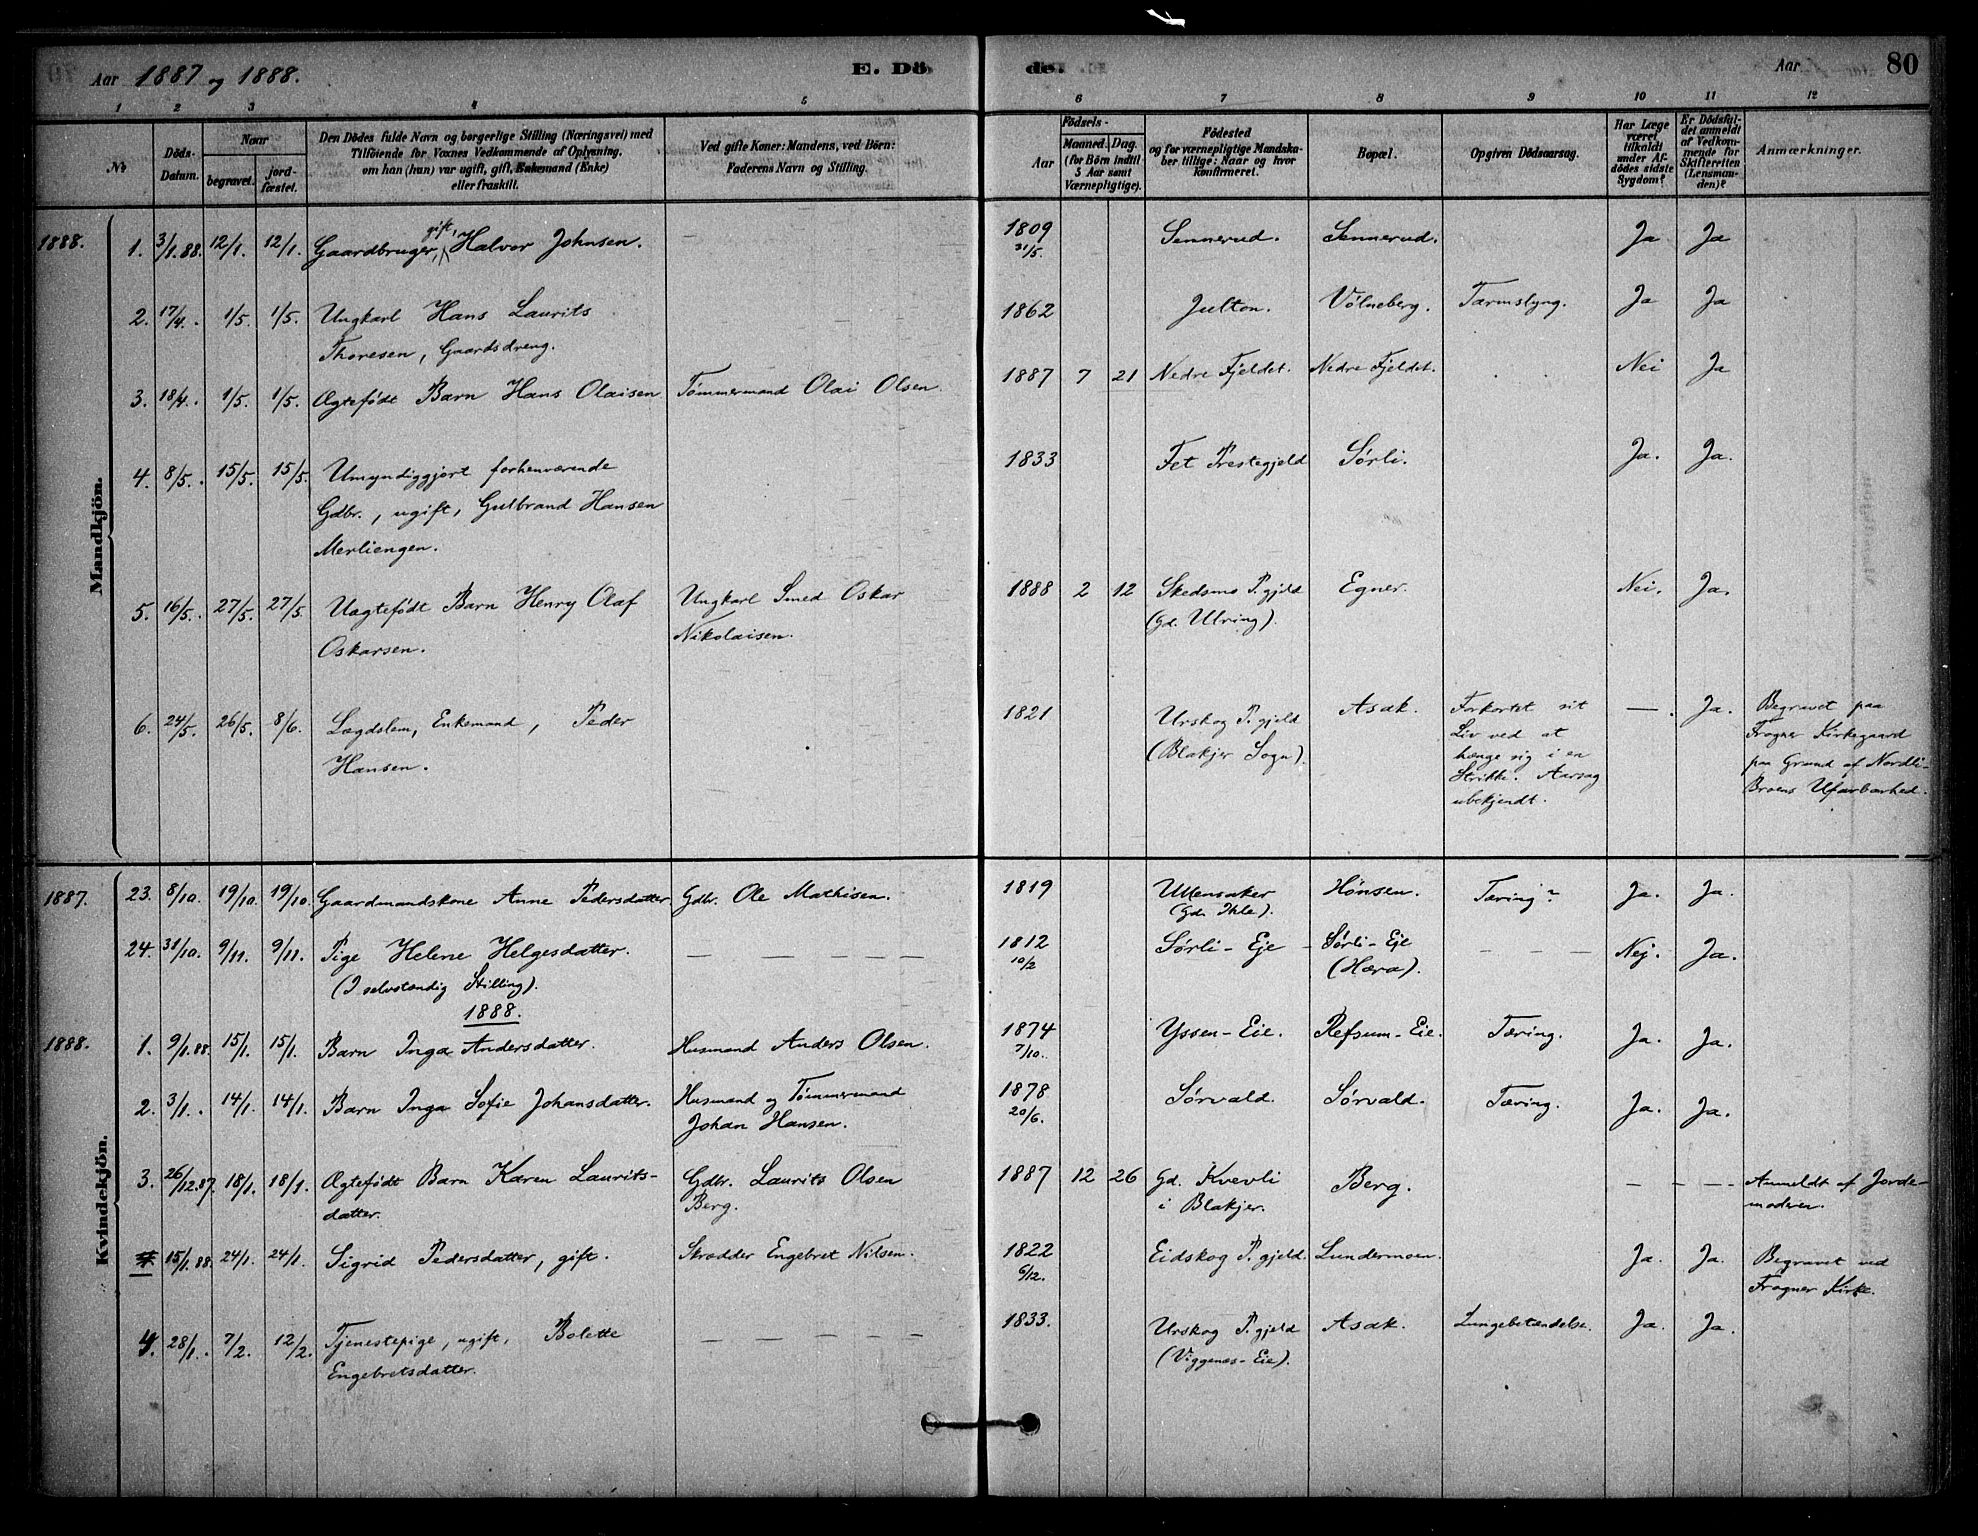 Aar 1887 og 1888. E. Dö
de. Aar 80
1 2 3 4 5 6 7 8 9 10 11 12
No
Döds-Datum.
Naar
begravet.
jord-fæstet.
Den Dödes fulde Navn og borgerlige Stilling (Næringsvei) med
Tilföiende for Voxnes Vedkommende af Oplysning,
om han (hun) var ugift, gift, Enkemand (Enke)
eller fraskilt.
Ved gifte Koner: Mandens, ved Börn:
Faderens Navn og Stilling.
Födsels-
Aar
Maaned. Dag.
(for Börn indtil
5 Aar samt
Værnepligtige).
Födested
og for værnepligtige Mandska-
ber tillige: Naar og hvor
konfirmeret.
Bopæl.
Opgiven Dödsaarsag.
Har Læge
været
tilkaldt
under Af-
dödes sidste
Sygdom?
Er Dödsfal-
det anmeldt
af Vedkom-
mende for
Skifteretten
(Lensman-
den)?
Anmærkninger.
Mandkjön.
1888. 1. 3/1.88. 12/1. 12/1. Gaardbruger, gift, Halvor Johnsen. — 1809 31/5. Sennerud. Sennerud. Ja Ja
2. 17/4. 1/5. 1/5. Ungkarl Hans Laurits — — — 1862 Julton. Vølneberg. Tarmslyng. Ja Ja
Thoresen, Gaardsdreng.
3. 18/4. 1/5. 1/5. Ægtefødt Barn Hans Olaisen Tømmermand Olai Olsen 1887 7 21 Nedre Fjeldet. Nedre Fjeldet. Nei Ja
4. 8/5. 15/5. 15/5. Umyndiggjort forhenværende 1833 Fet Prestegjeld Sørli. Ja. Ja.
Gdbr., ugift, Gulbrand Hansen
Merliengen.
5. 16/5. 27/5. 27/5. Uægtefødt Barn Henry Olaf Ungkarl Smed Oskar 1888 2 12 Skedsmo P.gjeld Egner. Nei. Ja.
Oskarsen. Nikolaisen. (Gd. Ulring).
6. 24/5. 26/5. 8/6. Lægdslem, Enkemand, Peder 1821 Urskog P.gjeld Asak. Forkortet sit — . Ja. Begravet paa
Hansen. (Blakjer Sogn). Liv ved at Frogner Kirkegaard
hænge sig i en paa Grund af Nordli-
Strikke. Aarsag Broens Ufarbarhed.
ubekjendt.
Kvindekjön.
1887. 23. 8/10. 19/10. 19/10. Gaardmandskone Anne Pedersdatter Gdbr. Ole Mathisen. 1819 Ullensaker Hønsen. Tæring? Ja. Ja.
(Gd. Ihle).
24. 31/10. 9/11. 9/11. Pige Helene Helgesdatter. — — — — — 1812 10/2 Sørli - Eje Sørli - Eje — — — Nej. Ja.
(I selvstændig Stilling). (Hæra).
1888.
1888. 1. 9/1.88. 15/1. 15/1. Barn Inga Andersdatter. Husmand Anders Olsen. 1874 7/10. Yssen - Eie. Refsum - Eie. Tæring. Ja. Ja.
2. 3/1. 14/1. 14/1. Barn Inga Sofie Johansdatter. Husmand og Tømmermand 1878 20/6. Sørvald. Sørvald. Tæring. Ja. Ja.
Johan Hansen.
3. 26/12.87. 18/1. 18/1. Ægtefødt Barn Karen Laurits- Gdbr. Laurits Olsen 1887 12 26 Gd. Kvevli Berg. — — — Anmeldt af Jorde-
datter. Berg. i Blakjer. moderen.
15/1.88. 24/1. 24/1. Sigrid Pedersdatter, gift. Skrædder Engebret Nilsen. 1822 6/12. Eidskog P.gjeld. Lundermoen. Ja. Ja. Begravet ved
Frogner Kirke.
4. 28/1. 7/2. 12/2. Tjenestepige, ugift, Bolette — — — — — 1833. Urskog P.gjeld Asak. Lungebetændelse. Ja. Ja.
Engebretsdatter. (Viggenæs - Eie).